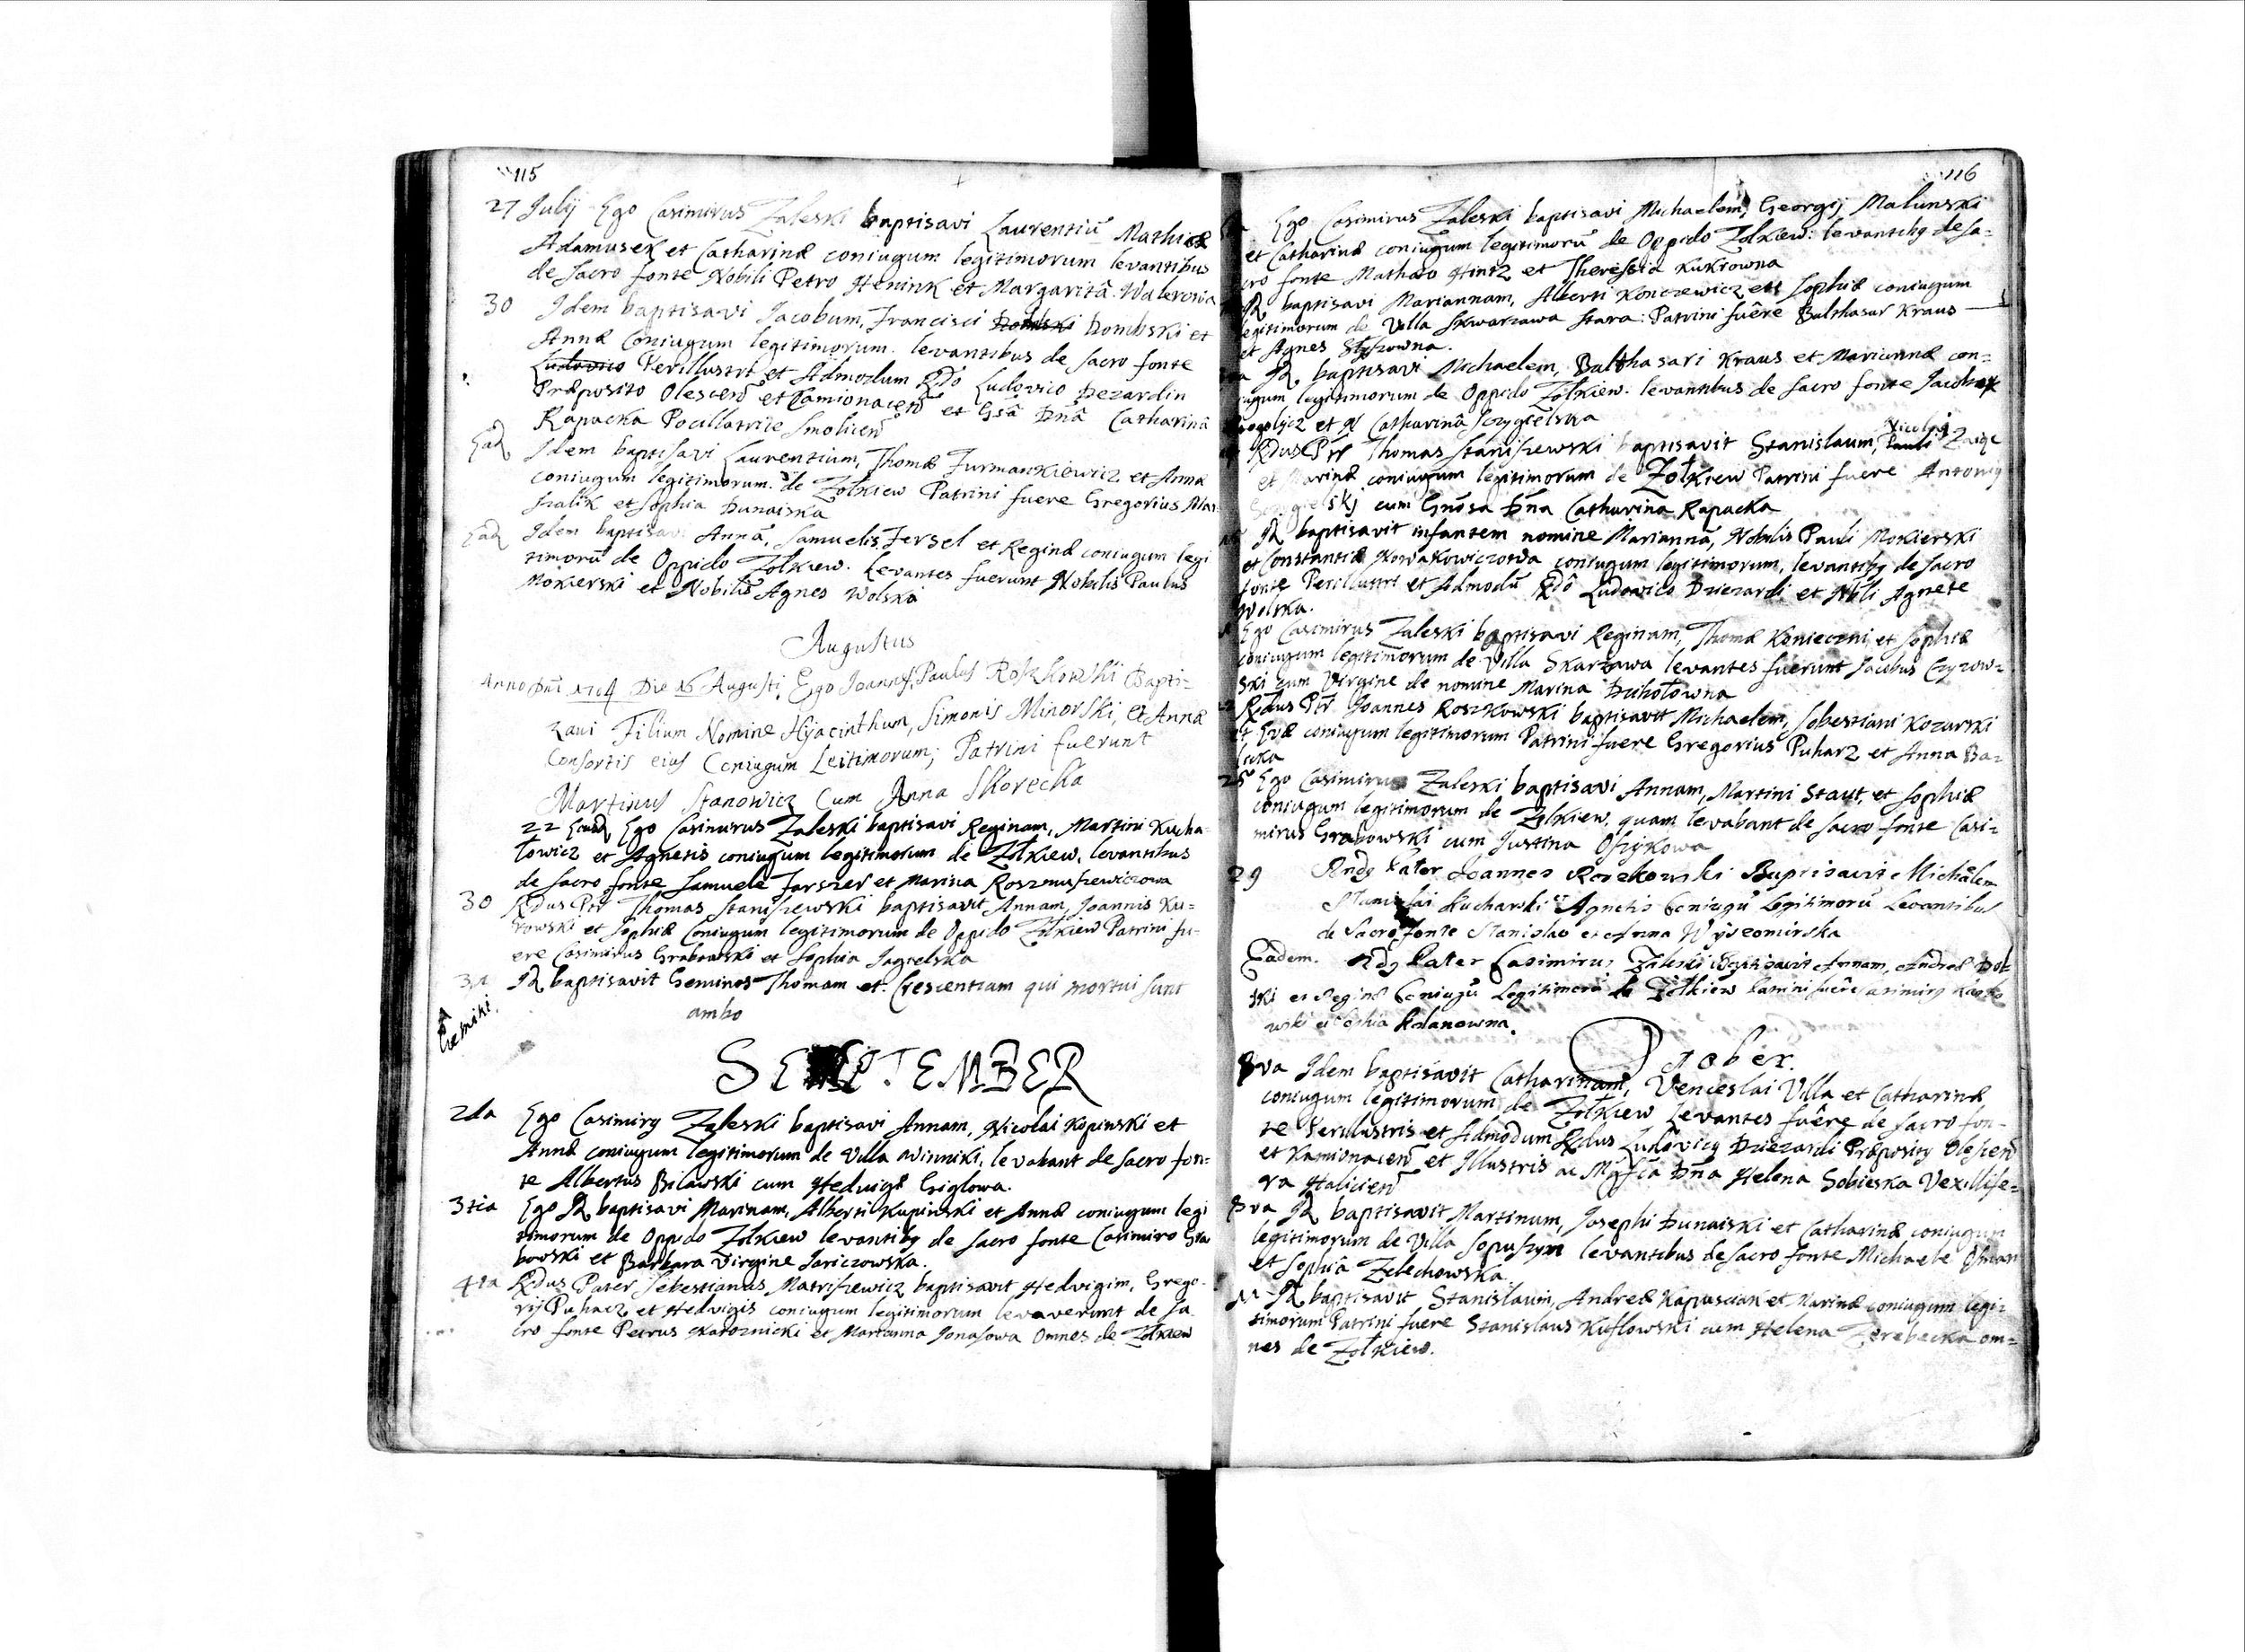 115
27 July Ego Casimirus Zaleski baptisavi Laurentiū Mathiæ
Adamusek et Catharinæ coniugum legitimorum levantibus
de Sacro fonte Nobili Petro Henink et Margaritâ Walerowa
30 Idem baptisavi Jacobum, Francisci Dombski Dombski et
Annæ Coniugum legitimorum. levantibus de Sacro fonte
Ludovico Perillustri et Admodum Rdo Ludovico Dezardin
Præposito Olescen̄ et Camionacen̄ et Gsâ Dn̄â Catharinâ
Rapacka Pocillatrice Smolicen̄
Ead Idem baptisavi Laurentium, Thomæ Furmankiewicz et Annæ
coniugum legitimorum. de Zołkiew Patrini fuere Gregorius Mar
szalik et Sophia Dunaiska
Ead Idem baptisavi Annā, Samuelis Fersel et Reginæ coniugum legi
timorū de Oppido Zolkiew. Levantes fuerunt Nobilis Paulus
Mokierski et Nobilis Agnes Wolska
Augustus
Anno Dn̄i 1704 Die 16 Augusti Ego Joannes Paulus Roszkowski Bapti=
zavi Filium Nomine Hyacinthum, Simonis Minorski, et Annæ
Consortis eius Coniugum Leitimorum; Patrini fuerunt
Martinus Stanowicz Cum Anna Skorecka
22 Eiusd Ego Casimirus Zaleski baptisavi Reginam, Martini Kucha=
łowicz et Agnetis coniugum legitimorum de Zołkiew, levantibus
de Sacro fonte Samuele Farszer et Marina Roszmuszewiczowa
30 Rdus Ptr Thomas Staniszewski baptisavit Annam, Joannis Ku=
rowski et Sophiæ Coniugum legitimorum de Oppido Zolkiew Patrini fu=
ere Casimirus Grabowski et Sophia Jagielska
31 Id baptisavit Geminos Thomam et Crescentiam qui mortui sunt
ambo
Gemini.
SEPTEMBER
2da Ego Casimirg Zaleski baptisavi Annam, Nicolai Kopinski et
Annæ coniugum legitimorum de Villa Winniki, levabant de Sacro fon=
te Albertus Bilawski cum Hedvige Giglowa.
3tia Ego Id baptisavi Marinam, Alberti Kupinski et Annæ coniugum legi
timorum de Oppido Zolkiew levantibg de Sacro fonte Casimiro Gra
bowski et Barbara Virgine Jariczowska.
4ta Rdus Pater Sebestianus Matriszewicz baptisavit Hedvigim, Grego=
rij Puharz et Hedvigis coniugum legitimorum levaverunt de Sa
cro fonte Petrus Karoznicki et Marianna Jonasowa Omnes de Zołkiew
116
Ego Casimirus Zaleski baptisavi Michaelem, Georgij Malunski
et Catharinæ coniugum legitimorū de Oppido Zolkiew. levantibg de Sa=
cro fonte Mathæo Hintz et Theressia Kukrowna
Id baptisavi Mariannam, Alberti Konczewicz et Sophiæ coniugum
legitimorum de Villa Skwarzawa Stara: Patrini fuêre Balthasar Kraus
et Agnes
Id baptisavi Michaelem, Balthasari Kraus et Mariannæ con=
iugum legitimorum de Oppido Zołkiew. levantibus de Sacro fonte Jacobo
et Catharinâ Sczygielska
Rdus Ptr Thomas Staniszewski baptisavit Stanislaum, Pauli Nicolai
et Marinæ coniugum legitimorum de Zołkiew Patrini fuere Antonig
cum Gnosa Dn̄a Catharina Rapacka
Id baptisavit infantem nomine Mariannā, Nobilis Pauli Mokierski
et Constantiæ Nowakowiczowa coniugum legitimorum, levantibg de Sacro
fonte Perillustri et Admodū Rdô Ludovico Dziezardi et Nbli Agnete
Wolska.
Ego Casimirus Zaleski baptisavi Reginam, Thomæ Konieczni, et Sophiæ
coniugum legitimorum de Villa Skarzawa levantes fuerunt Jacobus Czyzow=
ski cum Virgine de nomine Marina Dzihołowna
Rdus Ptr Joannes Roszkowski baptisavit Michaelem, Sobestiani Kozarski
et Evæ coniugum legitimorum Patrini fuere Gregorius Puharz et Anna Ba=
25 Ego Casimirus Zaleski baptisavi Annam, Martini Staut, et Sophiæ
coniugum legitimorum de Zolkiew, quam levabant de Sacro fonte Casi=
mirus Grabowski cum Justina
29 Rndg Pater Joannes Roszkowski Baptisavit Michālem
Stanislai Kucharski et Agnetis Coniugū Legitimorū Levantibus
de Sacro fonte Stanislao et Anna Wyszomirska
Eadem. Rdg Pater Casimirus Zaleski Baptisavit Annam, Andreæ Dol
ski et Reginæ Coniugū Legitimorū de Zołkiew Patrini fuêre Casimirg
October.
8va Idem baptisavit Catharinam, Venceslai Villa et Catharinæ
coniugum legitimorum de Zołkiew Levantes fuêre de Sacro fon=
te Perillustris et Admodum Rdus Ludovicg Dziezardi Præpositg Olescen̄
et Kamionacen̄ et Illustris ac Mgfca Dn̄a Helena Sobieska Vexillife=
ra Halicien̄
8va Id baptisavit Martinum, Josephi Dunaiski et Catharinæ coniugum
legitimorum de Villa Sopuszyn levantibus de Sacro fonte Michaele
et Sophiâ Zelechowska
11 Id baptisavit Stanislaum, Andreæ Kapusciak et Marinæ coniugum legi=
timorum Patrini fuere Stanislaus Kuflowski cum Helena Zerebecka om=
nes de Zołkiew.